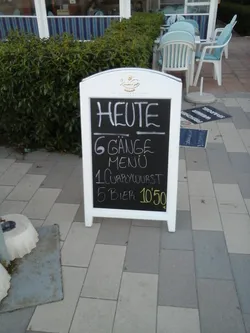 HEUTE
6 GÄNGE
MENÜ
1 CURRYWURST
5 BIER 10'50